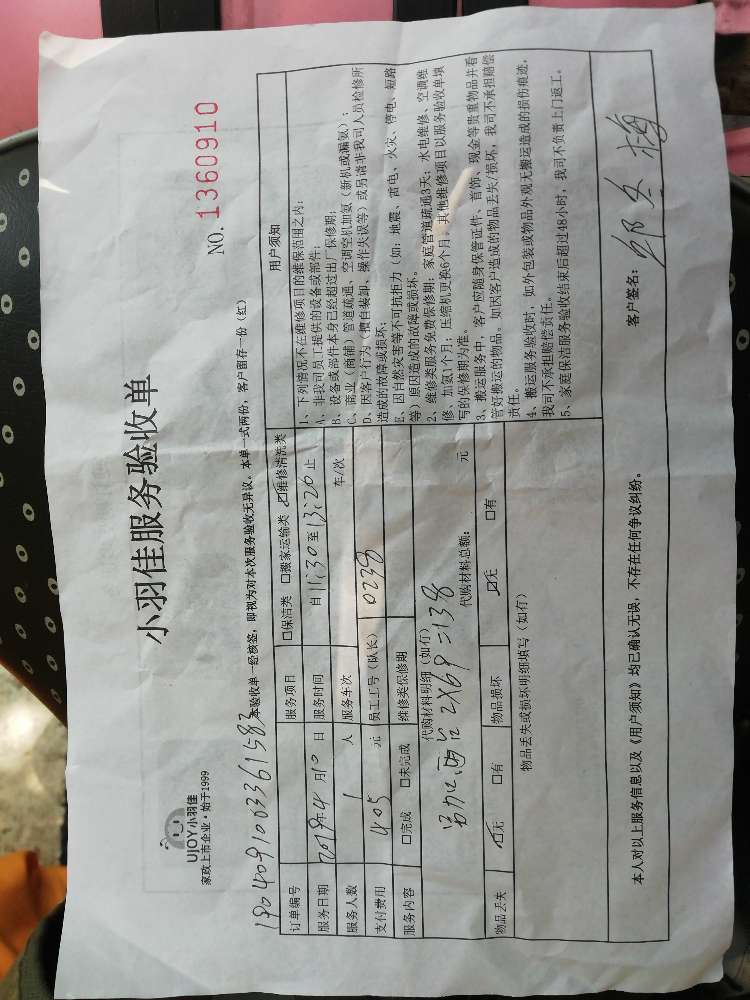 UJOY小羽佳
家政上市企业·始于1999
小羽佳服务验收单
NO. 1360910
1904091003361583
本验收单一经核签，即视为对本次服务验收无异议。本单一式两份，客户留存一份（红）
订单编号
服务项目 □保洁类 □搬家运输类 ☑维修清洗类
服务日期 2019年4月10日 服务时间 自11:30至13:20止
服务人数 1 人 服务车次 车/次
支付费用 405 元 员工工号（队长） 10238
服务内容 □完成 □未完成 维修类保修期
代购材料明细（如有）
2X69=138
代购材料总额： 元
物品丢失 ☑无 □有 物品损坏 ☑无 □有
物品丢失或损坏明细填写（如有）
用户须知
1、下列情况不在维修项目的维保范围之内：
A、非我司员工提供的设备或部件；
B、设备或部件本身已经超过出厂保修期；
C、商业（商铺）管道疏通、空调空机加氨（新机或漏氨）；
D、因客户行为（擅自装卸、操作失误等）或另请非我司人员检修所
造成的故障或损坏；
E、因自然灾害等不可抗拒力（如：地震、雷电、火灾、停电、短路
等）原因造成的故障或损坏。
2、维修类服务免费保修期：家庭管道疏通3天；水电维修、空调维
修、加氨1个月；压缩机更换6个月。其他维修项目以服务验收单填
写的保修期为准。
3、搬运服务中，客户应随身保管证件、首饰、现金等贵重物品并看
管好搬运的物品。如因客户造成的物品丢失/损坏，我司不承担赔偿
责任。
4、搬运服务验收时，如外包装或物品外观无搬运造成的损伤痕迹，
我司不承担赔偿责任。
5、家庭保洁服务验收结束后超过48小时，我司不负责上门返工。
本人对以上服务信息以及《用户须知》均已确认无误，不存在任何争议纠纷。
客户签名：